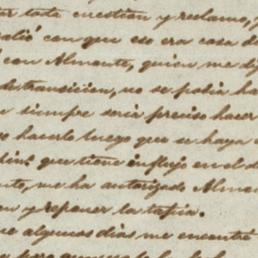 tar toda cuestion y reclamo,
salió con que eso era cosa d
con Almonte, quien me di
de transicion, no se podia ha
e siempre seria preciso hacer
o hacerlo luego que se haya
que tiene influjo en el d
nto, me ha autorizado Almon
n y reponer la
ue algunos dias me encontré